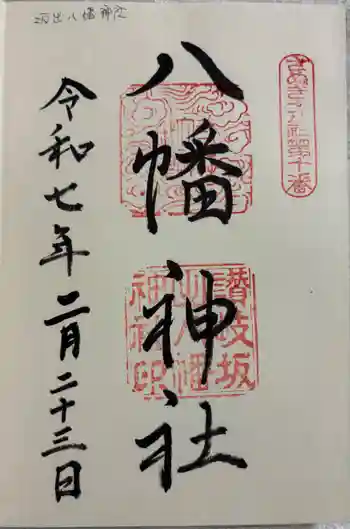 坂出八幡神社
さぬき十八社第十番
八幡神社
讃岐坂
出八幡
神社印
令和七年二月二十三日